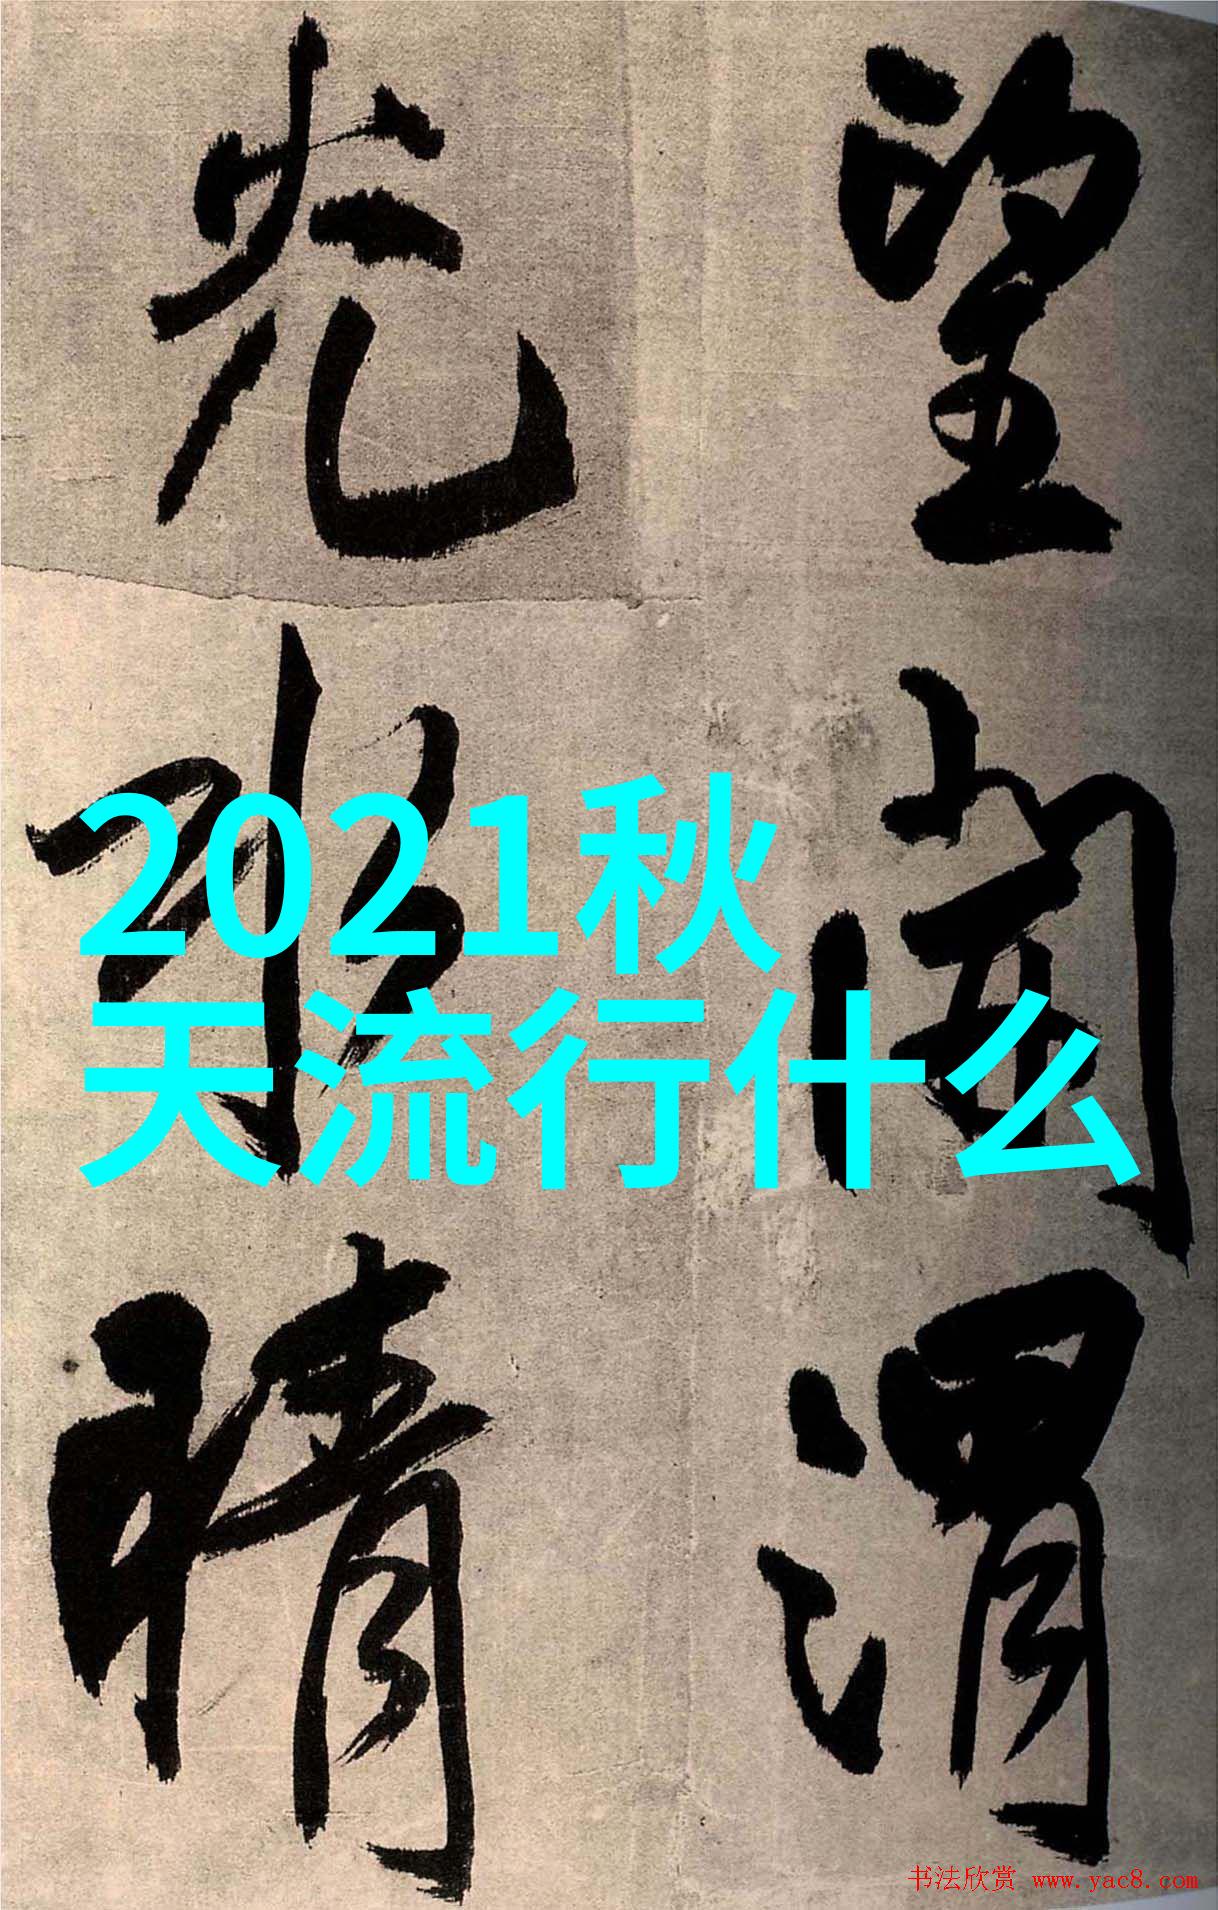 望
渭
光
晴
2021秋
天流行什么
书法欣赏 www.yac8.com